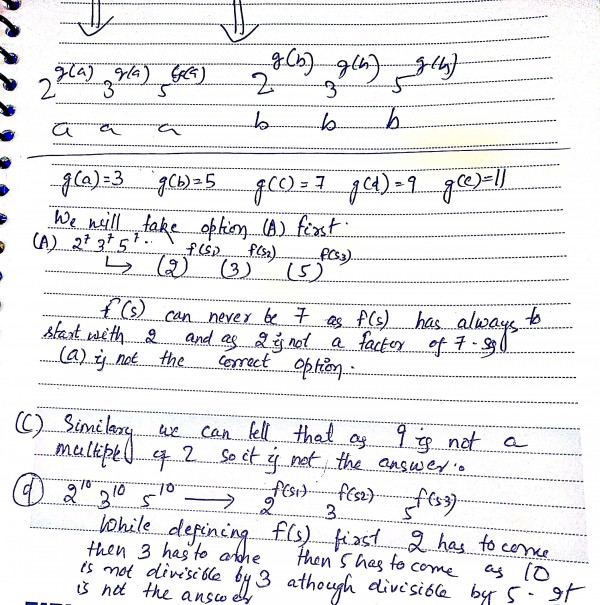 2^g(a) 3^g(a) 5^g(a) 2^g(b) 3^g(b) 5^g(b)
a a a b b b
g(a)=3 g(b)=5 g(c)=7 g(d)=9 g(e)=11
We will take option (A) first.
(A) 2^7 3^7 5^7.
↳ (2)^f(s1) (3)^f(s2) (5)^f(s3)
f(s) can never be 7 as f(s) has always to
start with 2 and as 2 is not a factor of 7. so
(a) is not the correct option.
(C) Similary we can tell that as 9 is not a
multiple of 2 so it is not the answer.
(d) 2^10 3^10 5^10 → 2^f(s1) 3^f(s2) 5^f(s3)
While defining f(s) first 2 has to come
then 3 has to come then 5 has to come as 10
is not divisible by 3 athough divisible by 5. It
is not the answer